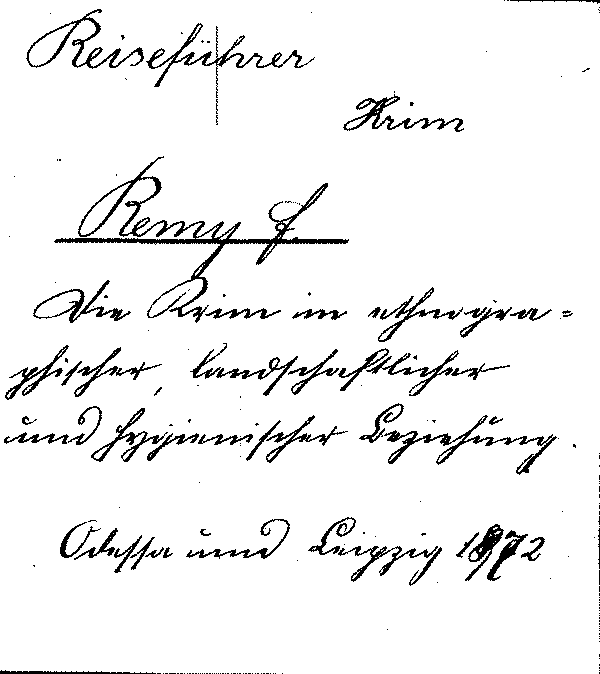 Reiseführer
Krim
Remy F.
Die Krim in ethnogra=
phischer, landschaftlicher
und hygienischer Beziehung.
Odessa und Leipzig 1872